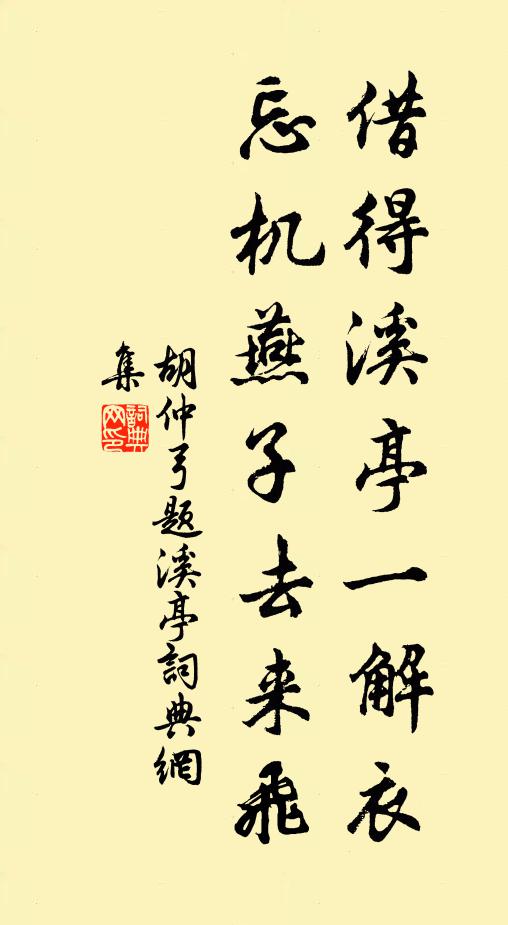 借得溪亭一解衣
忘机燕子去来飛
胡仲弓题溪亭詞典網
集
詞典
网印